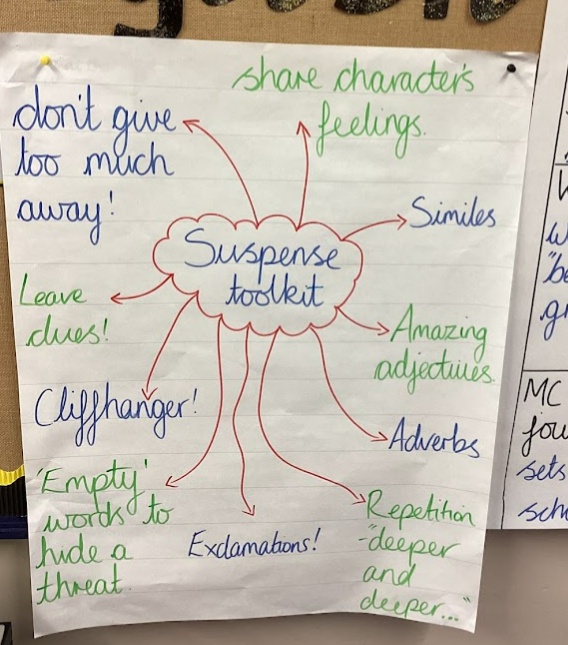 Suspense
toolkit
don't give
too much
away!
share character's
feelings.
Similes
Amazing
adjectives.
Adverbs
Repetition
-"deeper
and
deeper..."
Exclamations!
'Empty'
words to
hide a
threat.
Cliffhanger!
Leave
clues!
MC
sets